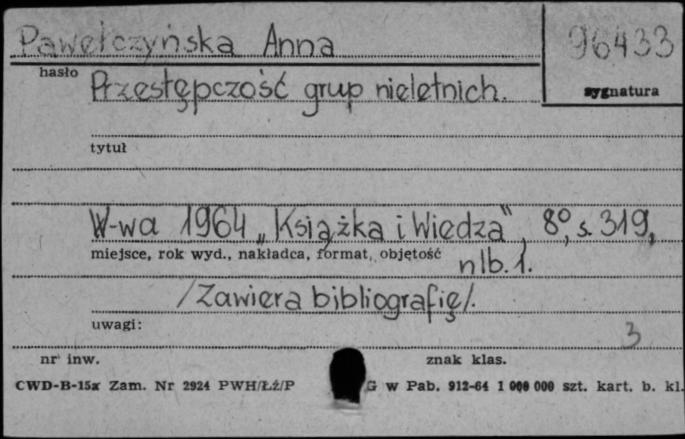 Pawełczyńska Anna
96433
hasło
sygnatura
Przestępczość grup nieletnich.
tytuł
W-wa 1964 „Książka i Wiedza", 8°, s. 319,
miejsce, rok wyd., nakładca, format, objętość
nlb. 1.
/Zawiera bibliografię/.
uwagi:
3
nr inw.
znak klas.
CWD-B-15x Zam. Nr 2924 PWH/ŁŻ/P G w Pab. 912-64 1 000 000 szt. kart. b. kl.